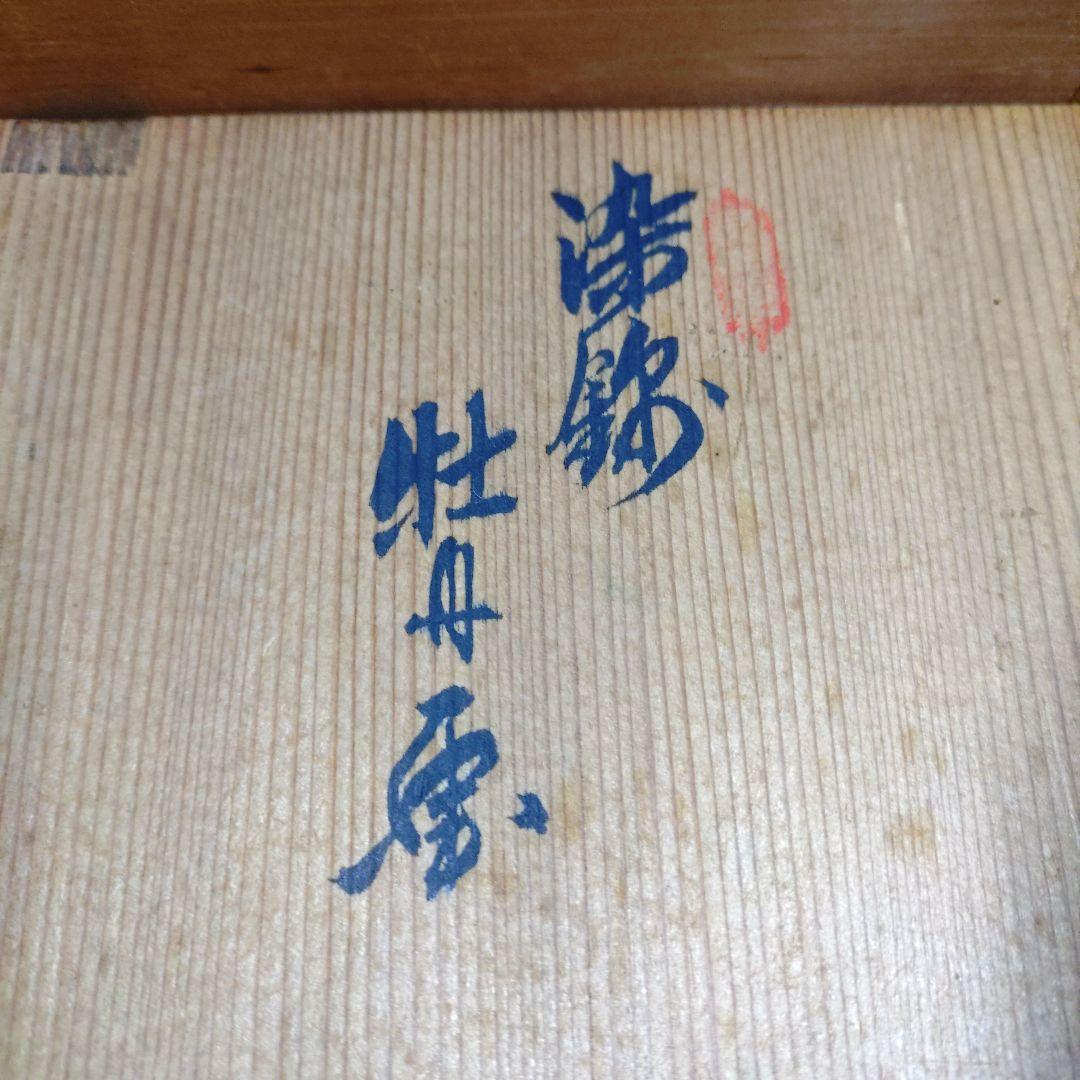 染錦
牡丹